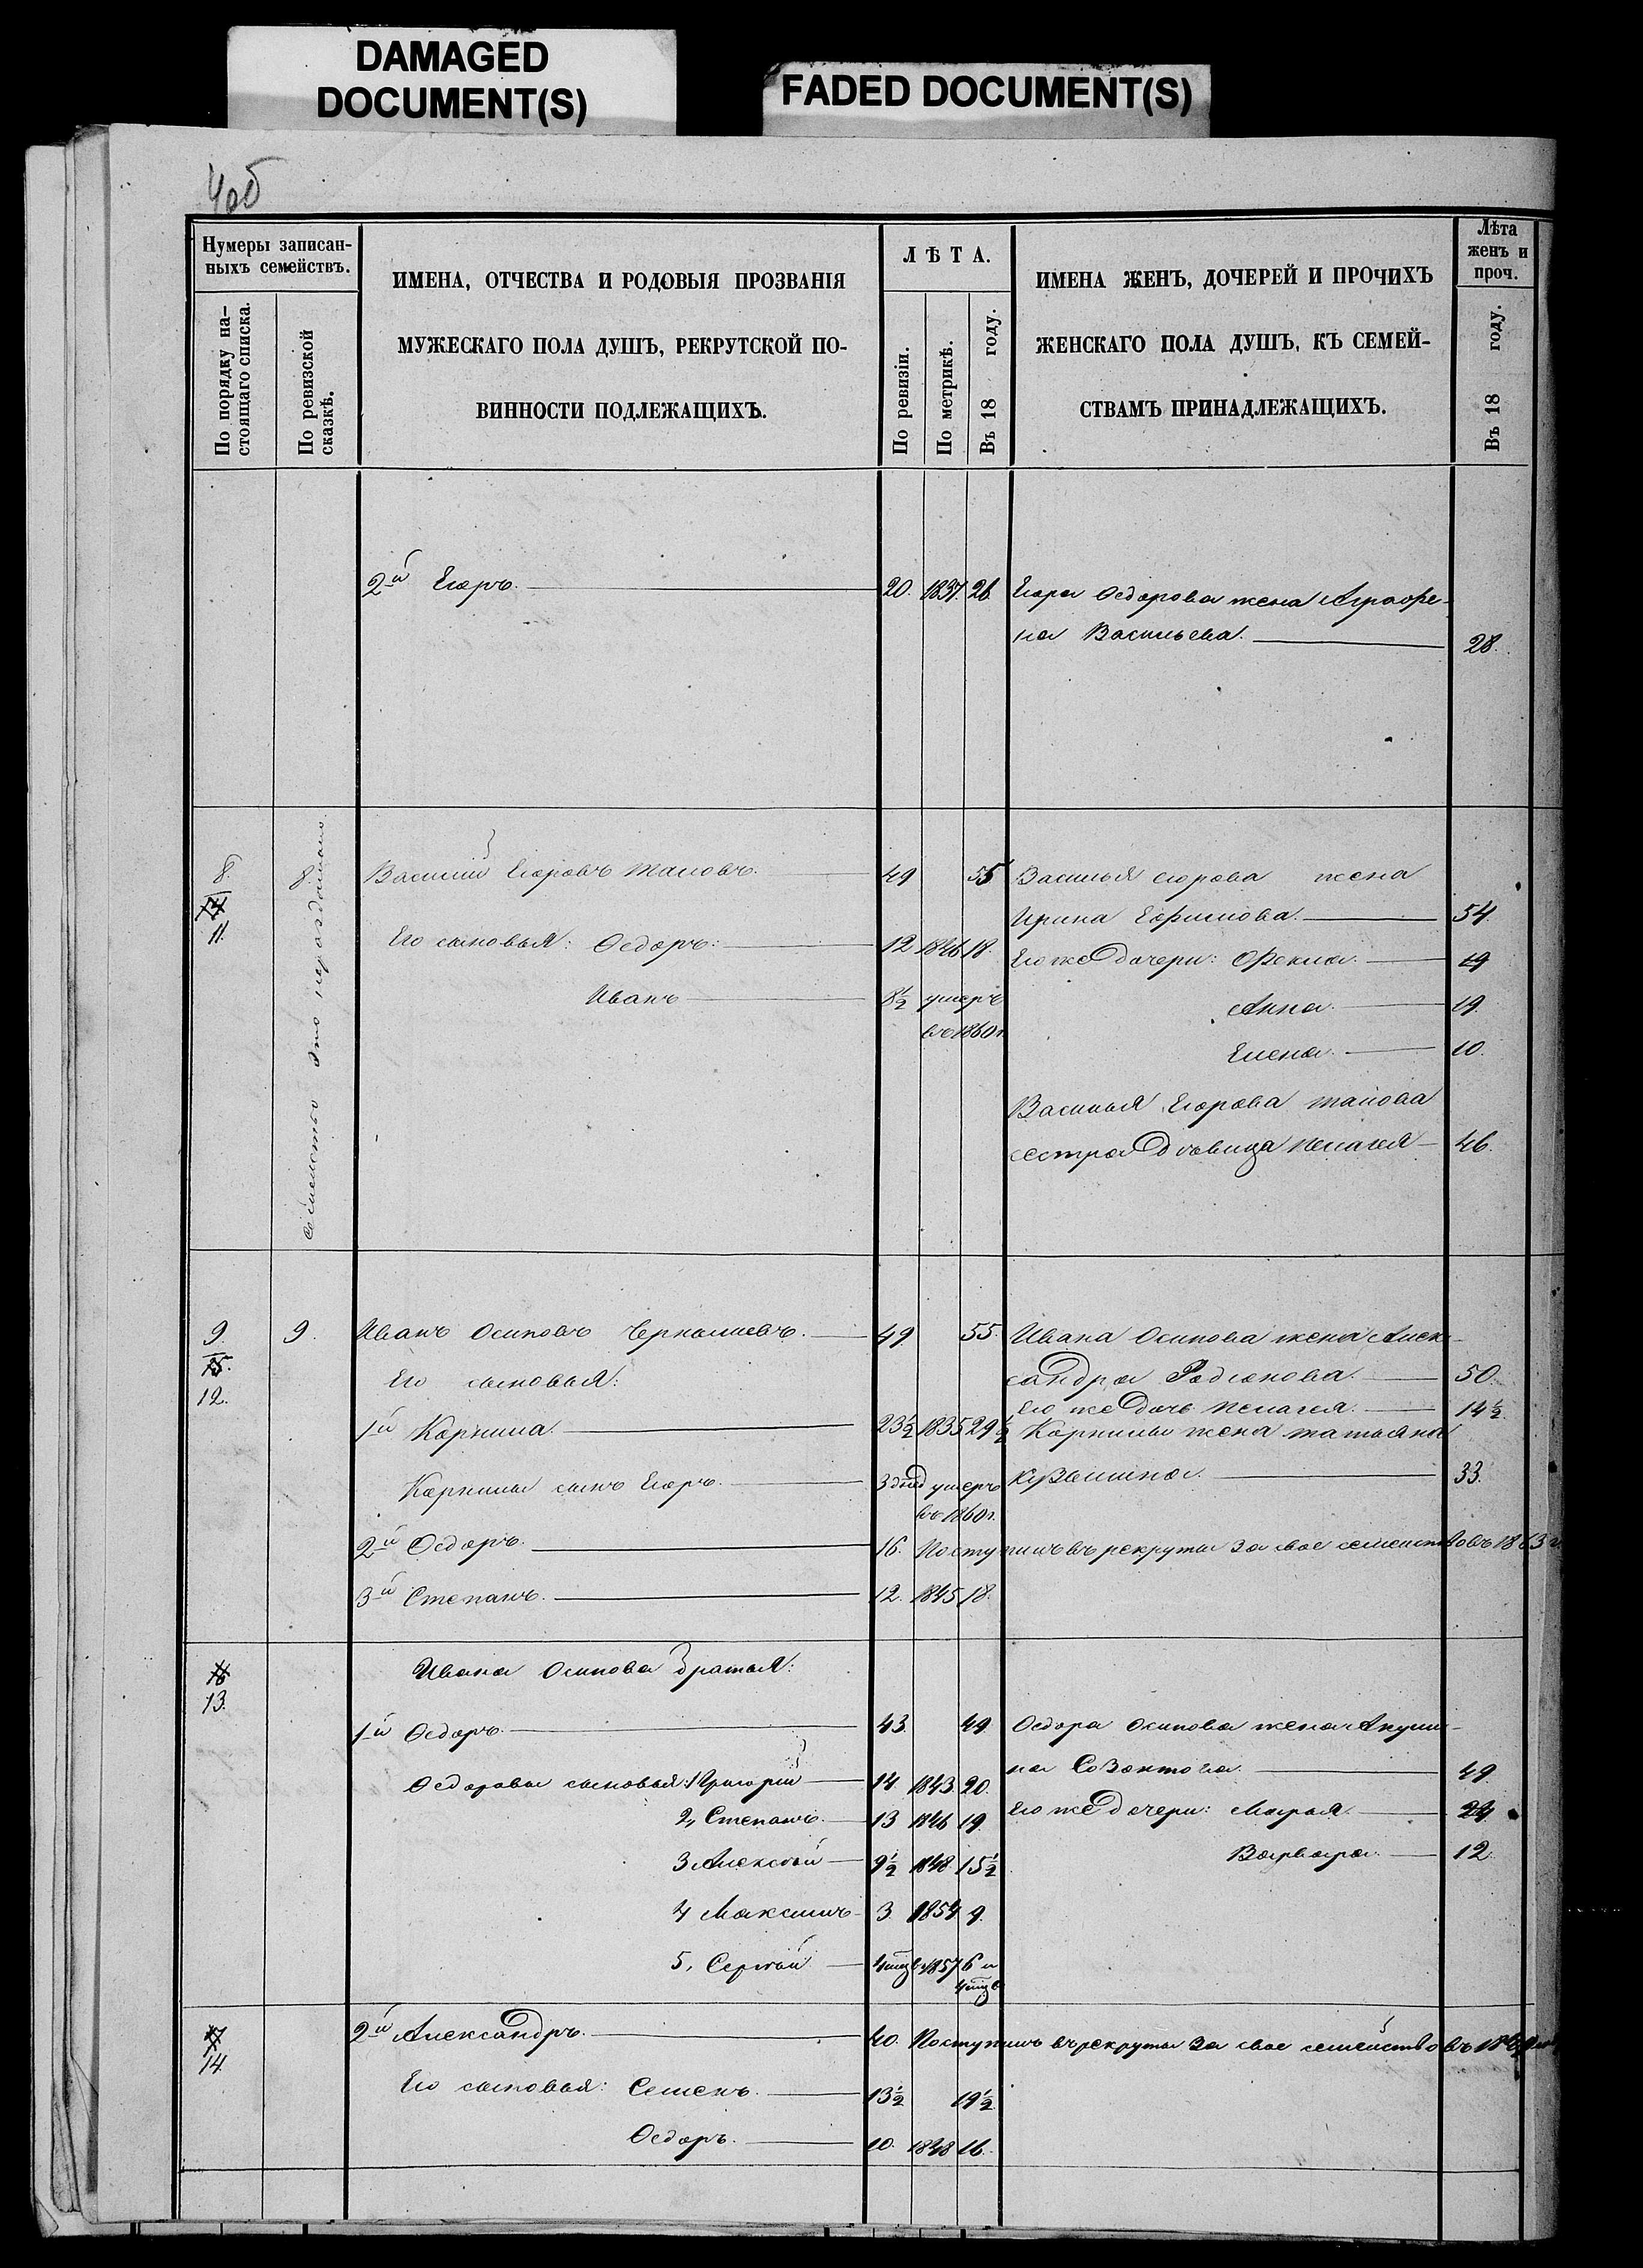 DAMAGED
DOCUMENT(S)
FADED DOCUMENT(S)
4об
Нумеры записан-
ныхъ семействъ.
По порядку на-
стоящаго списка.
По ревизской
сказкѣ.
ИМЕНА, ОТЧЕСТВА И РОДОВЫЯ ПРОЗВАНІЯ
МУЖЕСКАГО ПОЛА ДУШЪ, РЕКРУТСКОЙ ПО-
ВИННОСТИ ПОДЛЕЖАЩИХЪ.
ЛѢТА.
По ревизіи.
По метрикѣ.
Въ 18 году.
ИМЕНА ЖЕНЪ, ДОЧЕРЕЙ И ПРОЧИХЪ
ЖЕНСКАГО ПОЛА ДУШЪ, КЪ СЕМЕЙ-
СТВАМЪ ПРИНАДЛЕЖАЩИХЪ.
Лѣта
женъ и
проч.
Въ 18 году.
2й Егоръ. 20. 1837. 26. Егора Ѳедорова жена Аграфе-
на Васильева. 28.
8. 8. Василій Егоровъ 49 55 Василья Егорова жена
11. Ирина Ефимова. 54.
Его сыновья: Ѳедоръ: 12 1846 18. Его же дочери: Ѳекла. 19
Иванъ 8½ умеръ Анна. 19.
въ 1860г.
Елена. 10.
Василья Егорова
сестра дѣвица Пелагея 46.
семейство это нераздѣльно
9. 9. Иванъ Осиповъ 49. 55. Ивана Осипова жена Алек-
15.
12. Его сыновья: сандра Родіонова. 50.
Его же дочь Пелагея. 14½
1й Корнила. 23½ 1835 29½ Корнилы жена Татьяна
Корнилы сынъ Егоръ. 3 дней умеръ 33.
въ 1860г.
2й Ѳедоръ. 16. Поступилъ въ рекруты за свое семейство въ 1863г.
3й Степанъ. 12. 1845 18.
16
13. Ивана Осипова братья:
1й Ѳедоръ. 43. 49. Ѳедора Осипова жена Акули-
на 49.
Ѳедоровы сыновья: 1 Григорій 14. 1843. 20.
2, Степанъ. 13 1846 19. Его же дочери: Марья. 24
3 Алексѣй 9½ 1848 15½ Варвара. 12.
4 Максимъ 3. 1854 9.
5, Сергѣй 4 мѣсц. 1857 6 и
4 мѣсц.
17
14. 2й Александръ. 40. Поступилъ въ рекруты за свое семейство въ
Его сыновья: Семенъ. 13½ 19½
Ѳедоръ. 10. 1848 16.